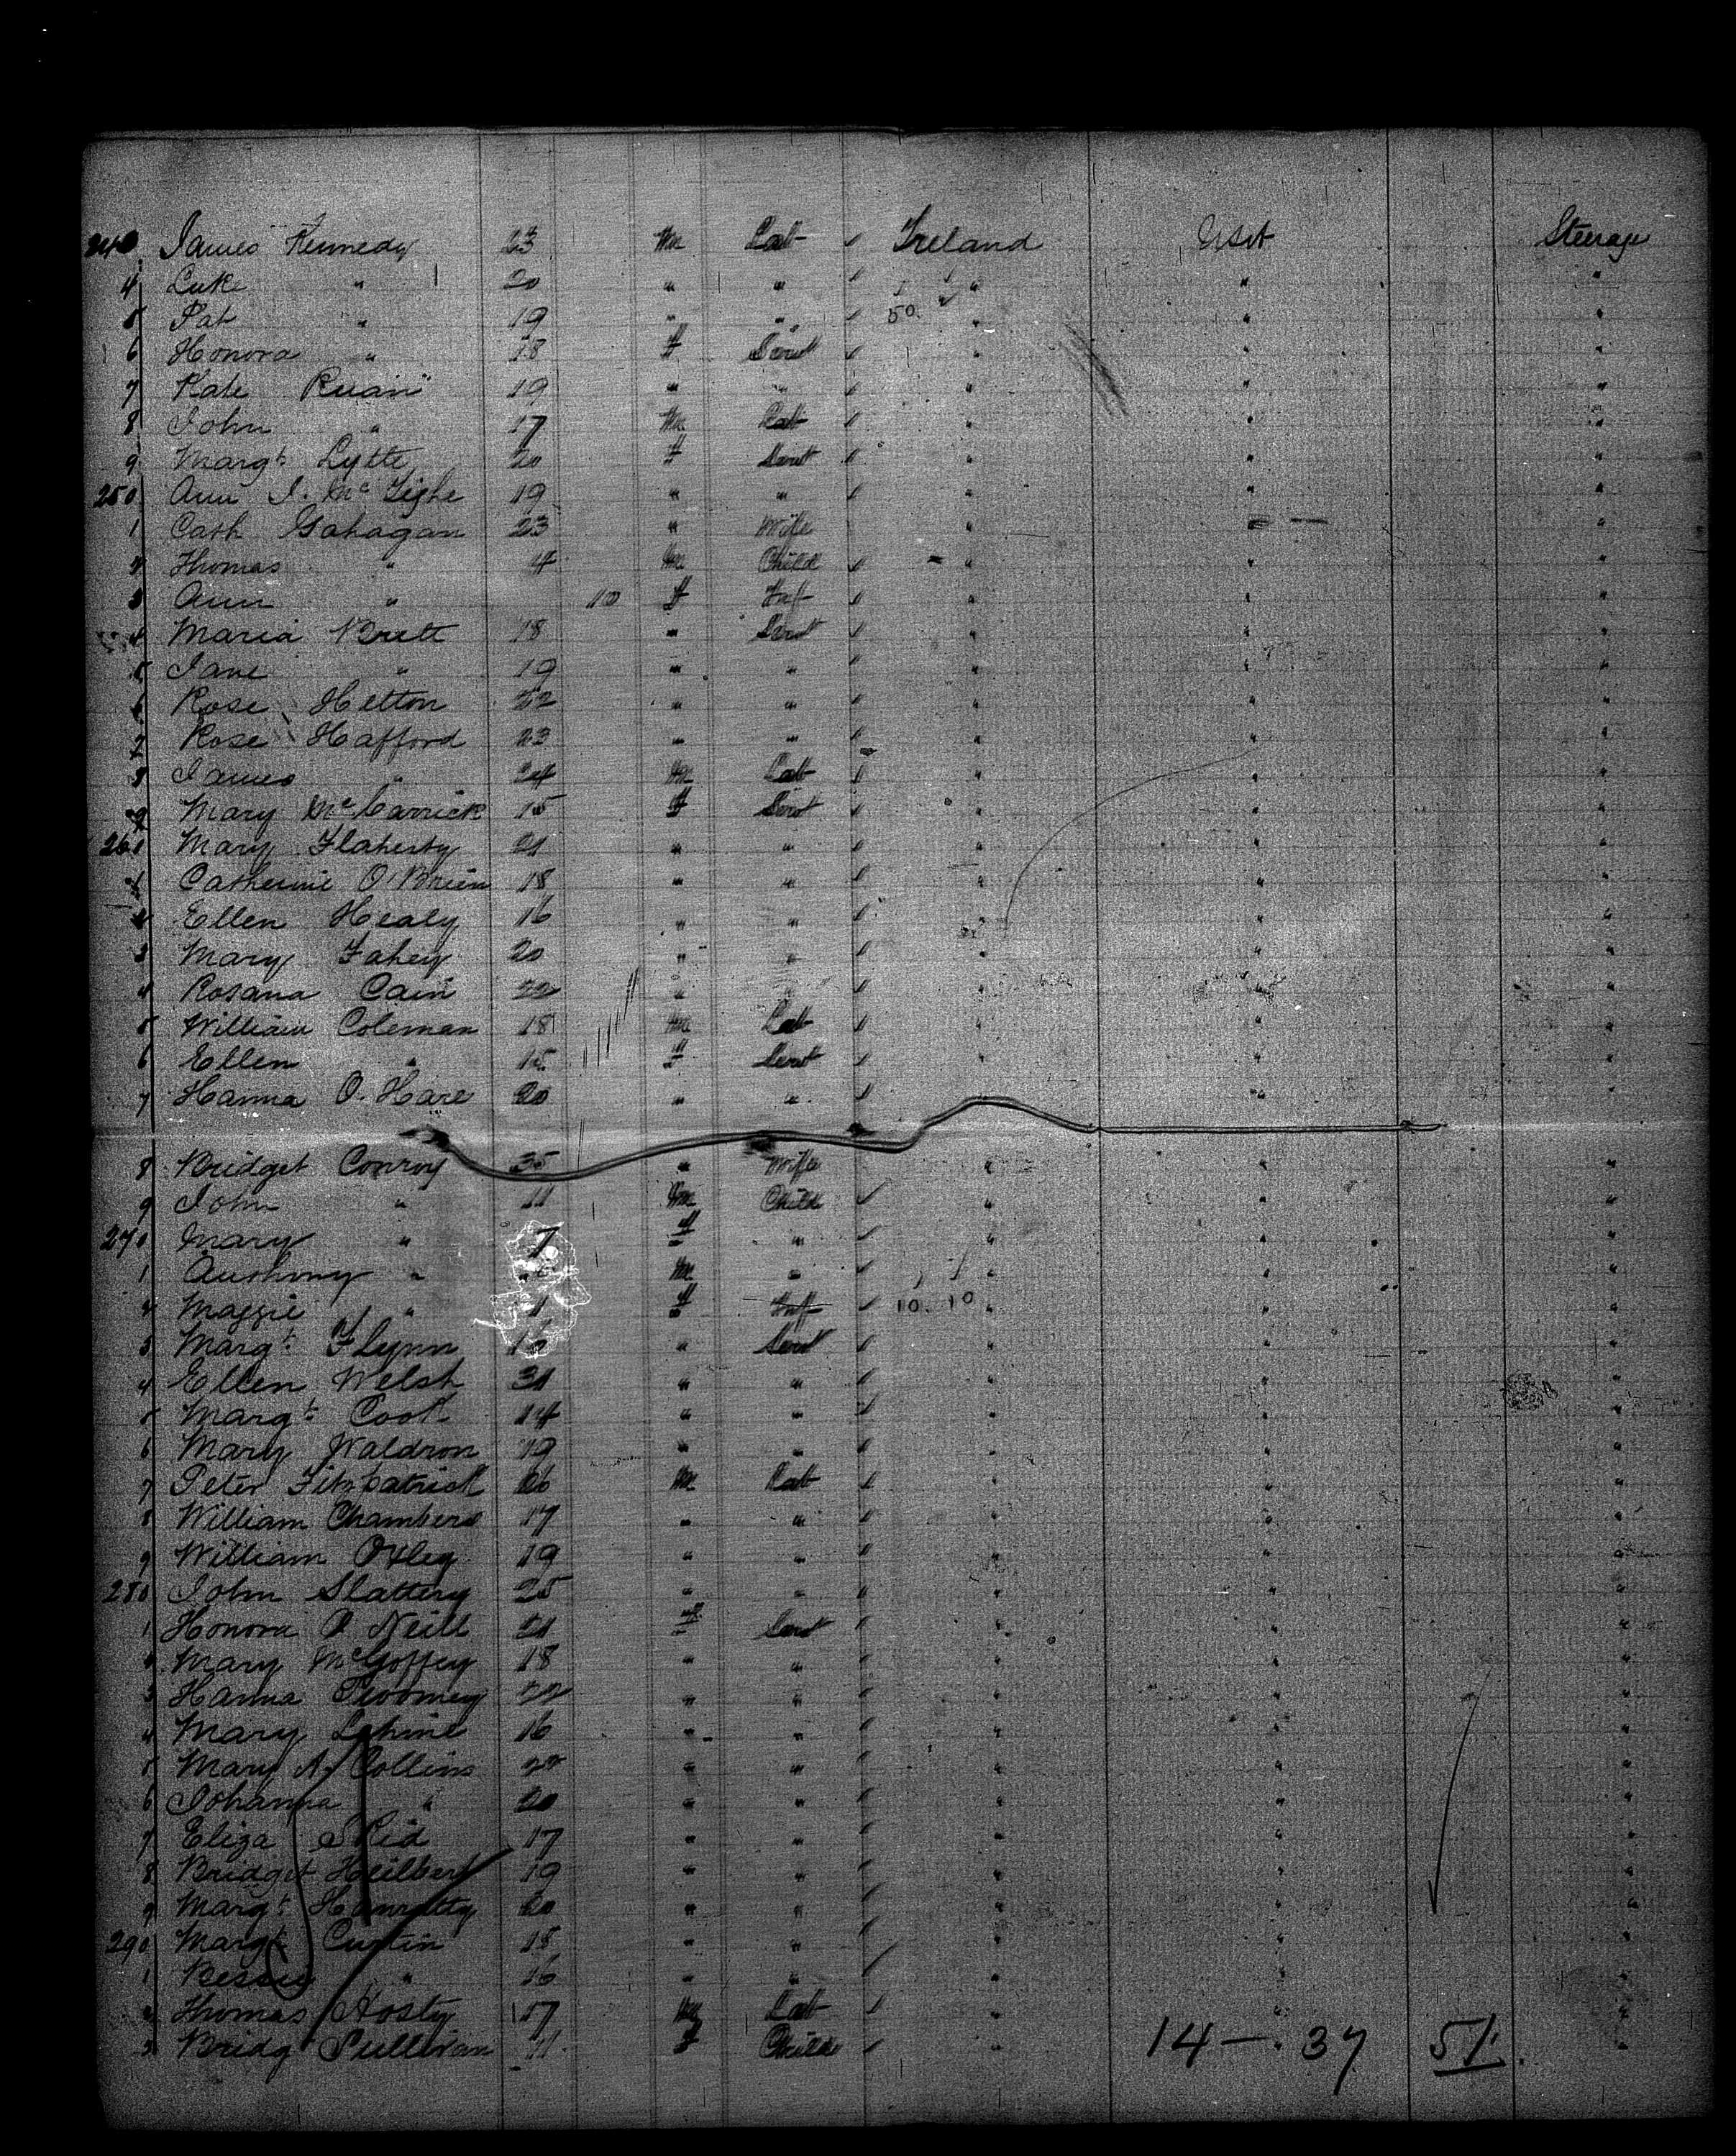 240 James Kennedy 23 m Lab Ireland USA Steerage
4 Luke " 20 " " " " "
5 Pat " 19 " " 50 " " "
6 Honora " 18 f Servt " " "
7 Kate Ruan 19 " " " " "
8 John " 17 m Lab " " "
9 Margt Lytte 20 f Servt " " "
250 Ann J. McTighe 19 " " " " "
1 Cath Gahagan 23 " Wife "
2 Thomas " 4 m Child " "
3 Ann " 10 f Inf " " "
4 Maria Brett 18 " Servt " " "
5 Jane " 19 " " " " "
6 Rose Helton 22 " " " " "
7 Rose Hafford 23 " " " " "
8 James " 24 m Lab " " "
9 Mary McCarrick 15 f Servt " " "
260 Mary Flaherty 21 " " " " "
1 Catherine O'Brien 18 " " " " "
2 Ellen Healy 16 " " " " "
3 Mary Fahey 20 " " " " "
4 Rosana Cain 22 " " " " "
5 William Coleman 18 m Lab " " "
6 Ellen " 15 f Servt " " "
7 Hanna O. Hare 20 " " " "
8 Bridget Conroy 35 " Wife " " "
9 John " 11 m Child " " "
270 Mary " 7 f " " " "
1 Anthony " m " " " "
2 Maggie " 1 f Inf 10. 10 " " "
3 Margt Flynn " Servt " " "
4 Ellen Welsh 31 " " " " "
5 Margt Cook 14 " " " " "
6 Mary Waldron 19 " " " " "
7 Peter Fitzpatrick 26 m Lab " " "
8 William Chambers 17 " " " " "
9 William Oxley 19 " " " " "
280 John Slattery 25 " " " " "
1 Honora O Neill 21 f Servt " " "
2 Mary McGoffey 18 " " " " "
3 Hanna Twomey 22 " " " " "
4 Mary Lehine 16 " " " " "
5 Mary A. Collins 22 " " " " "
6 Johanna " 20 " " " " "
7 Eliza 17 " " " " "
8 Bridget 19 " " " " "
9 Margt Hanratty 20 " " " " "
290 Margt Curtin 18 " " " " "
1 Bessie " 16 " " " " "
2 Thomas Hosty 57 m Lab " " "
3 Bridg Sullivan 11 f Child " "
14 — 37 51.